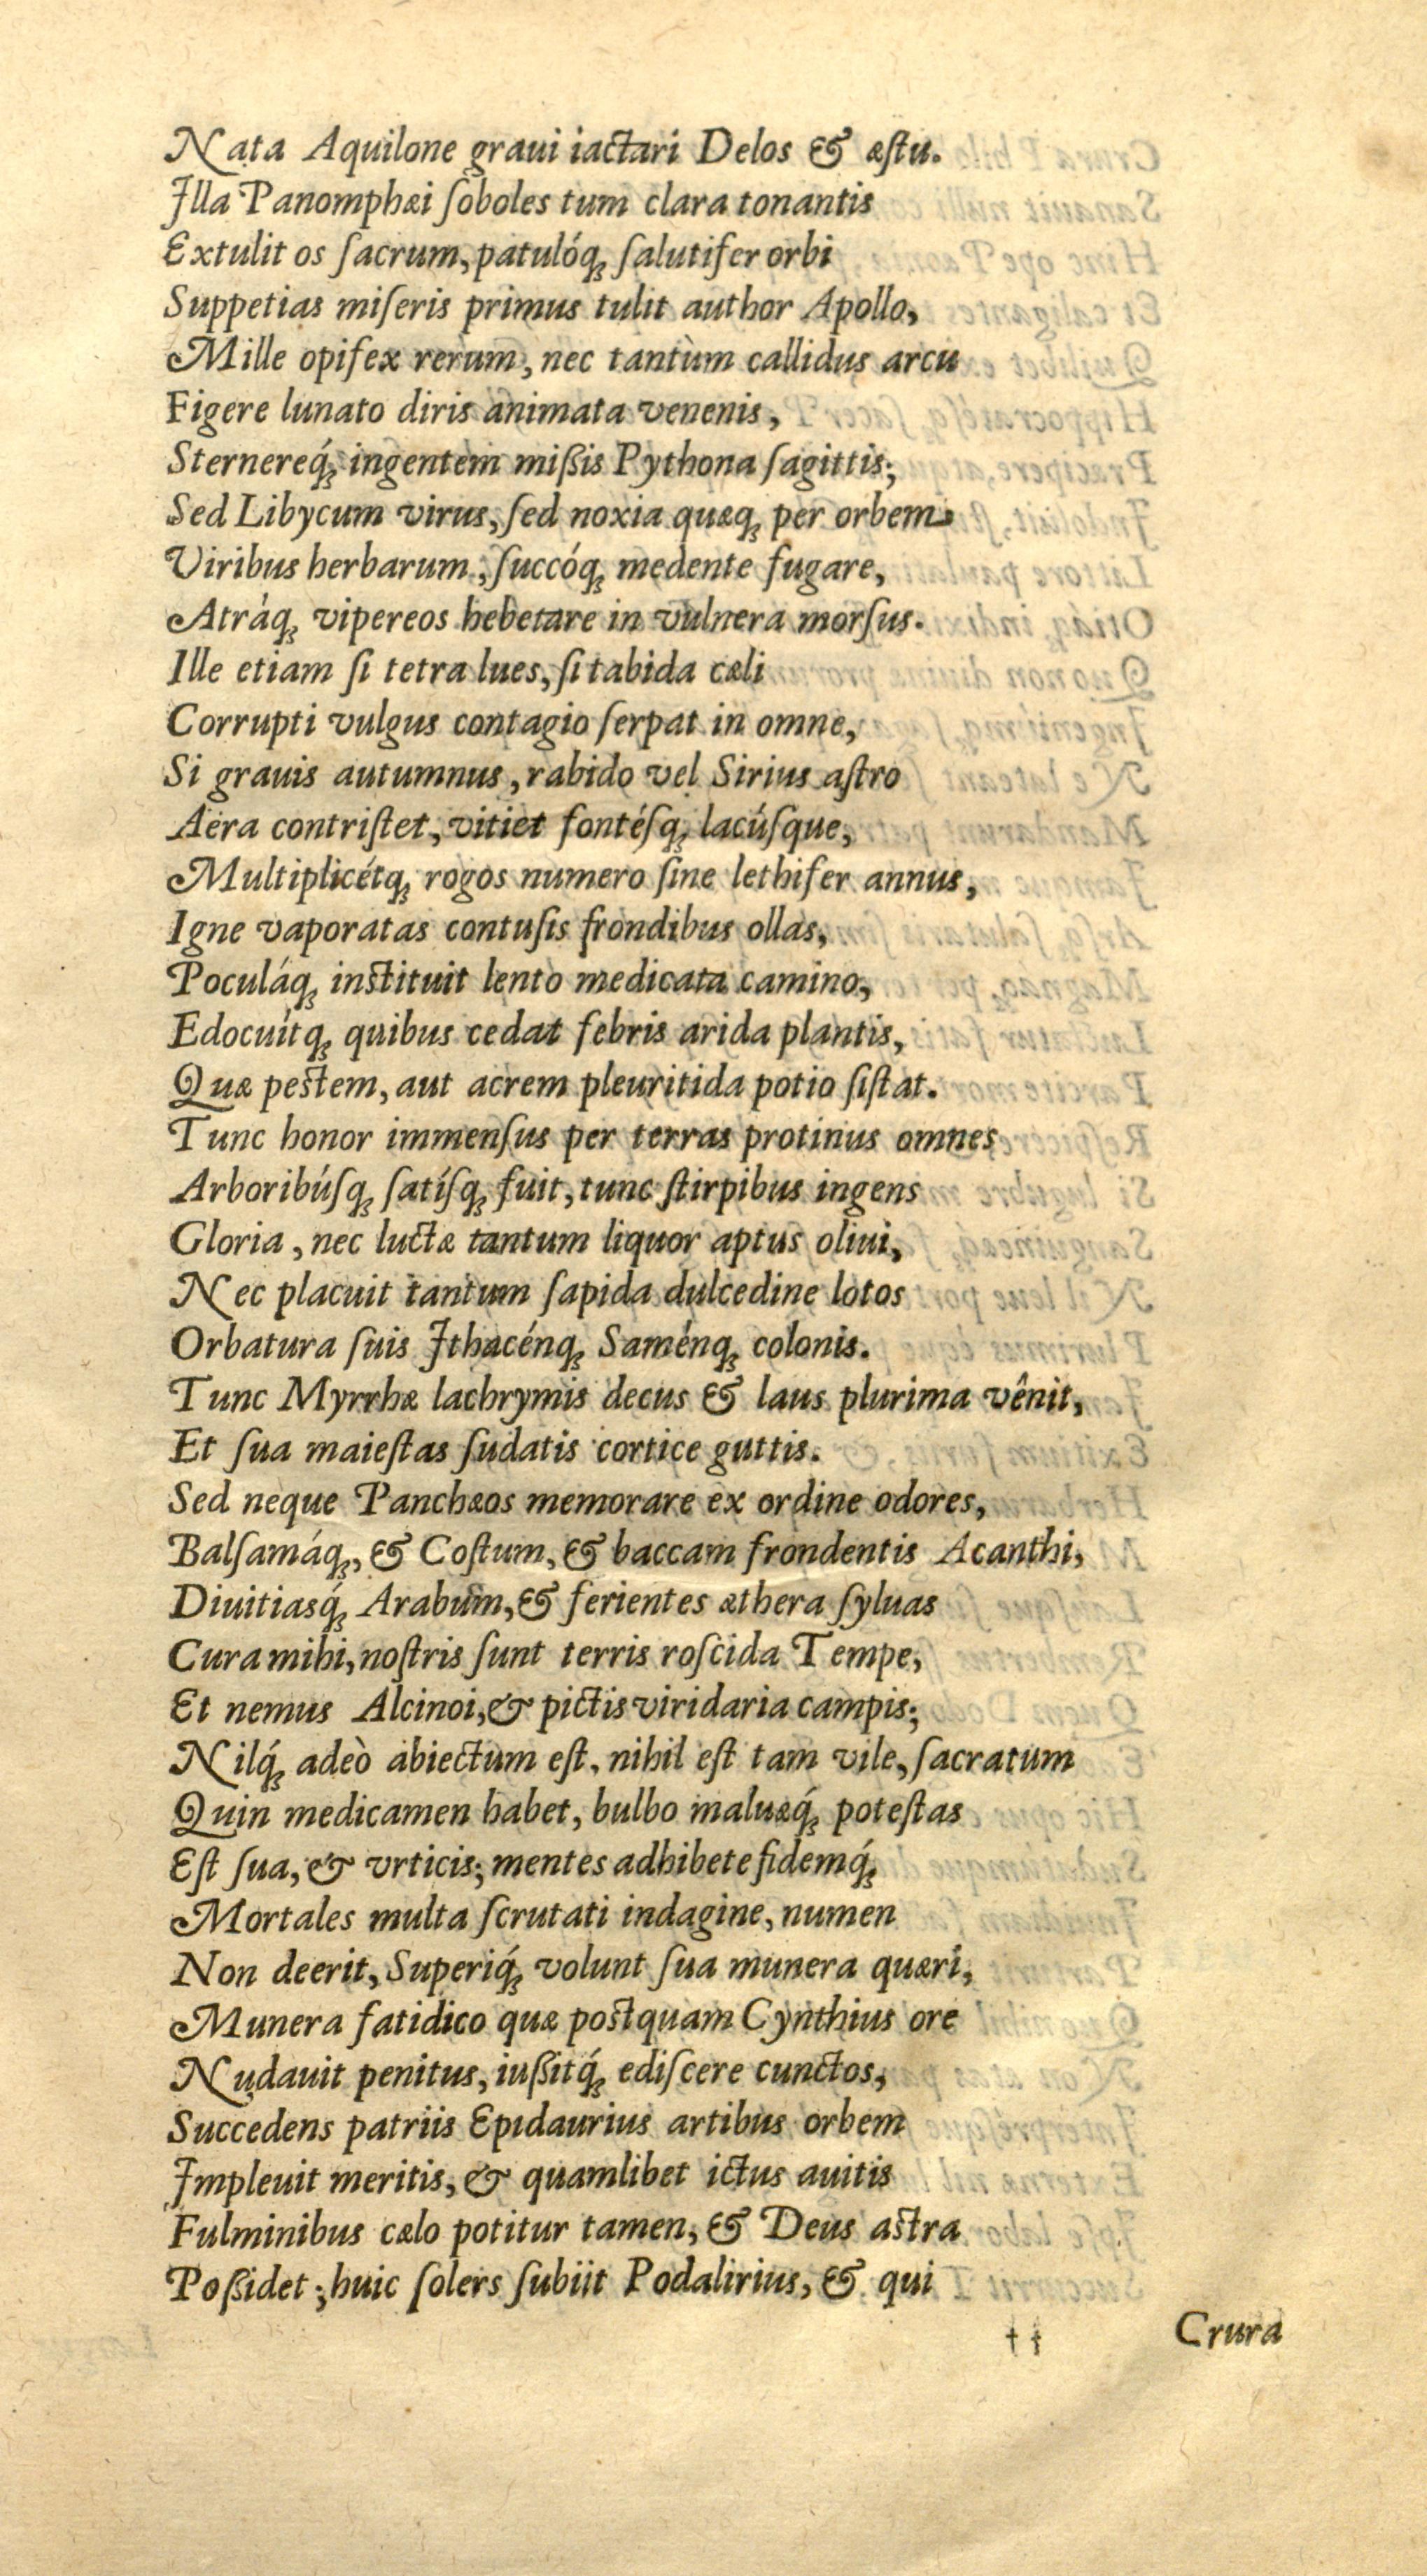 Nata Aquilone graui iactari Delos & æſtu.
Illa Panomphæi ſoboles tum clara tonantis
Extulit os ſacrum, patulóq; ſalutifer orbi
Suppetias miſeris primus tulit author Apollo,
Mille opifex rerum, nec tantùm callidus arcu
Figere lunato diris animata venenis,
Sternereq́; ingentem mißis Pythona ſagittis;
Sed Libycum virus, ſed noxia quæq; per orbem
Viribus herbarum, ſuccóq; medente fugare,
Atráq; vipereos hebetare in vulnera morſus.
Ille etiam ſi tetra lues, ſi tabida cæli
Corrupti vulgus contagio ſerpat in omne,
Si grauis autumnus, rabido vel Sirius aſtro
Aëra contriſtet, vitiet fontéſq; lacúſque,
Multiplicétq; rogos numero ſine lethifer annus,
Igne vaporatas contuſis frondibus ollas,
Poculáq; inſtituit lento medicata camino,
Edocuítq; quibus cedat febris arida plantis,
Quæ peſtem, aut acrem pleuritida potio ſiſtat.
Tunc honor immenſus per terras protinus omnes
Arboribúſq; ſatíſq; fuit, tunc ſtirpibus ingens
Gloria, nec luctæ tantum liquor aptus oliui,
Nec placuit tantum ſapida dulcedine lotos
Orbatura ſuis Ithacénq; Saménq; colonis.
Tunc Myrrhæ lachrymis decus & laus plurima vênit,
Et ſua maieſtas ſudatis cortice guttis.
Sed neque Panchæos memorare ex ordine odores,
Balſamáq;, & Coſtum, & baccam frondentis Acanthi,
Diuitiasq́; Arabum, & ferientes æthera ſyluas
Cura mihi, noſtris ſunt terris roſcida Tempe,
Et nemus Alcinoi, & pictis viridaria campis;
Nilq́; adeò abiectum eſt, nihil eſt tam vile, ſacratum
Quin medicamen habet, bulbo maluæq́; poteſtas
Eſt ſua, & vrticis; mentes adhibete fidemq́;
Mortales multa ſcrutati indagine, numen
Non deerit, Superiq́; volunt ſua munera quæri,
Munera fatidico quæ poſtquam Cynthius ore
Nudauit penitus, iußitq́; ediſcere cunctos,
Succedens patriis Epidaurius artibus orbem
Impleuit meritis, & quamlibet ictus auitis
Fulminibus cælo potitur tamen, & Deus aſtra
Poßidet; huic ſolers ſubiit Podalirius, & qui
† † Crura